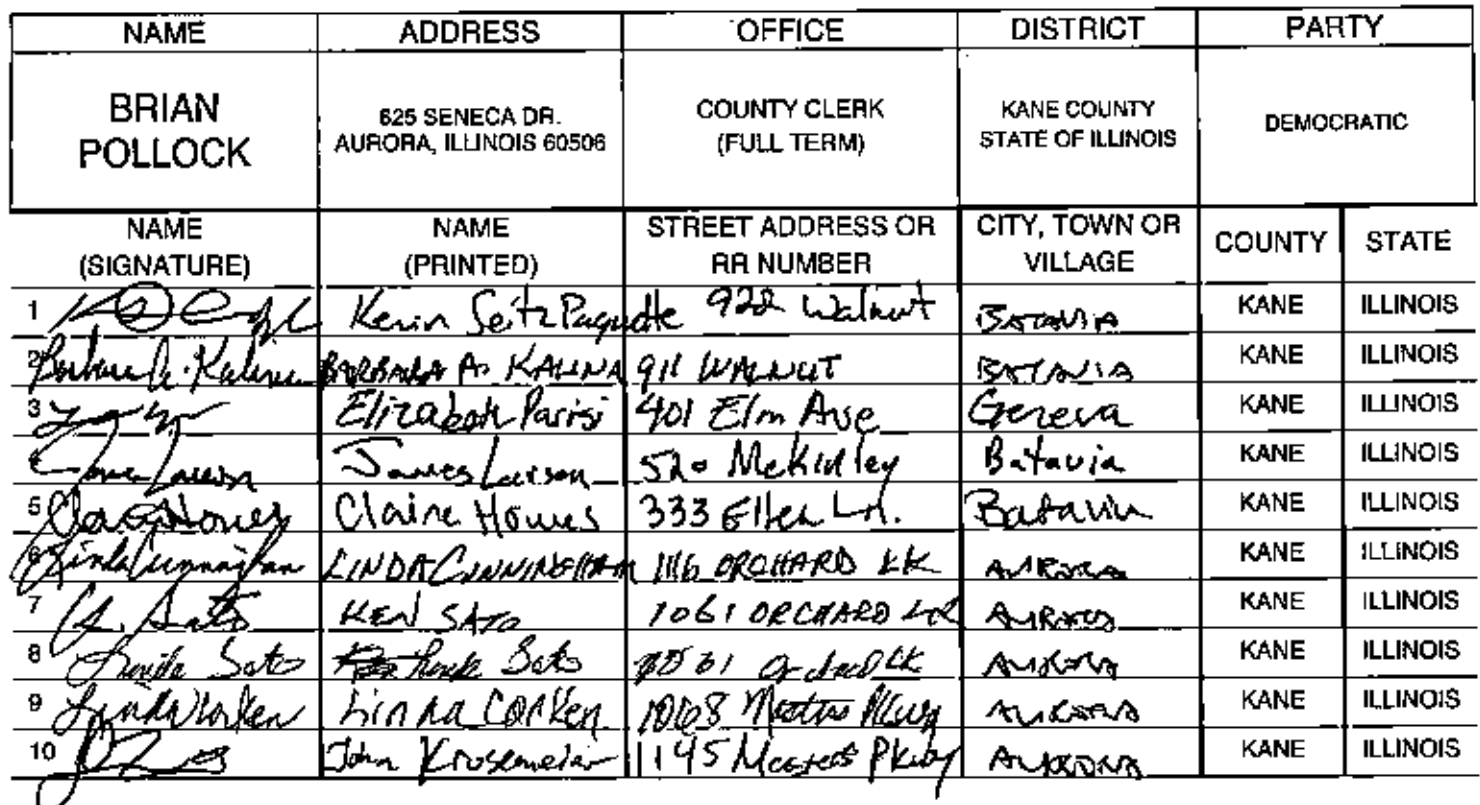 NAME ADDRESS OFFICE DISTRICT PARTY
BRIAN POLLOCK 625 SENECA DR. AURORA, ILLINOIS 60506 COUNTY CLERK (FULL TERM) KANE COUNTY STATE OF ILLINOIS DEMOCRATIC
NAME (SIGNATURE) NAME (PRINTED) STREET ADDRESS OR RR NUMBER CITY, TOWN OR VILLAGE COUNTY STATE
1 Kevin Seitz Paquette 922 Walnut BATAVIA KANE ILLINOIS
2 Barbara A. Kalina BARBARA A. KALINA 911 WALNUT BATAVIA KANE ILLINOIS
3 Elizabeth Parisi 401 Elm Ave Geneva KANE ILLINOIS
4 James Larson James Larson 520 McKinley Batavia KANE ILLINOIS
5 Claire Howes Claire Howes 333 Ellen Ln. Batavia KANE ILLINOIS
6 Linda Cunningham LINDA CUNNINGHAM 1116 ORCHARD LK AURORA KANE ILLINOIS
7 K. Sato KEN SATO 1061 ORCHARD LK AURORA KANE ILLINOIS
8 Sato Sato 1061 Orchard LK AURORA KANE ILLINOIS
9 Linda Corken Linda Corken Pkwy AURORA KANE ILLINOIS
10 John 1145 Masters Pkwy AURORA KANE ILLINOIS